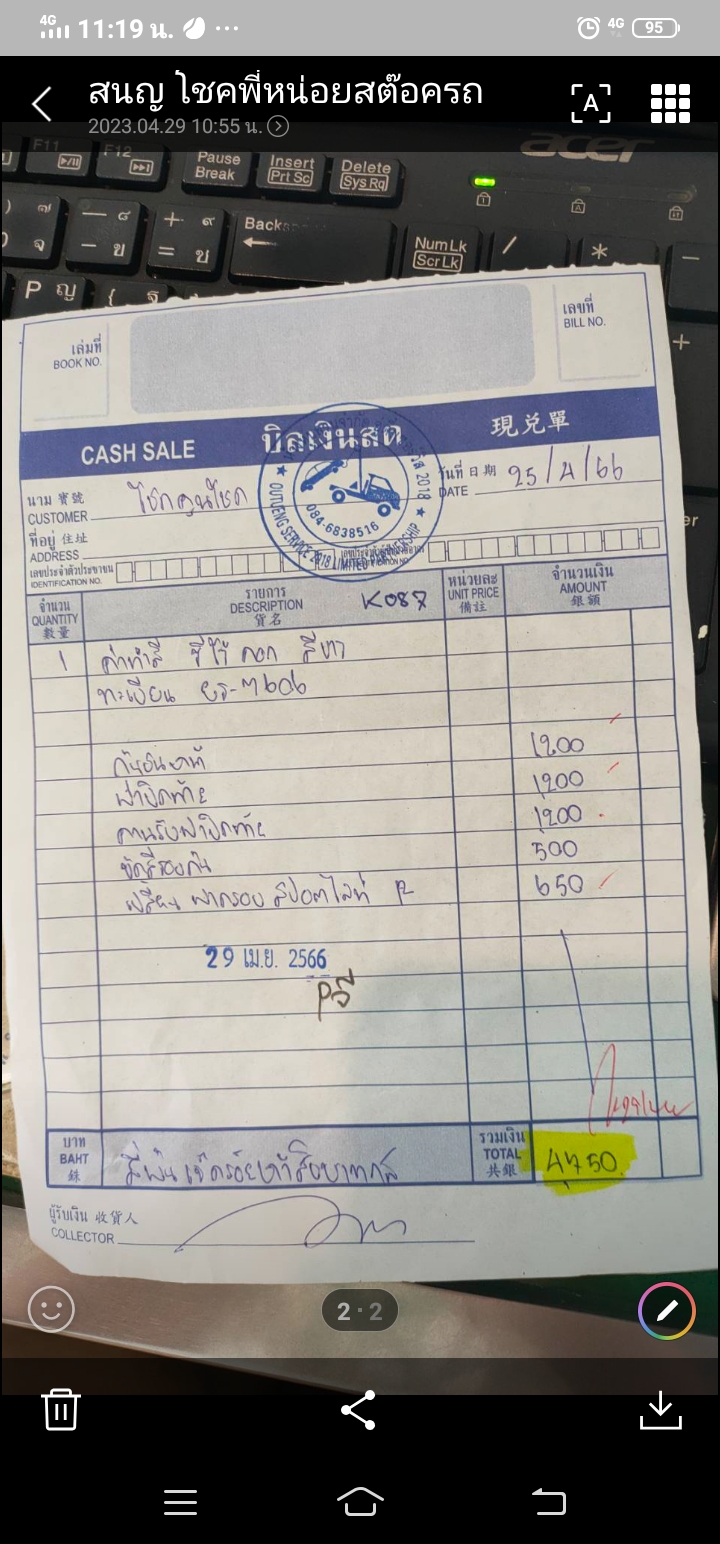 4G 11:19 น. 4G 95
สนญ โชคพี่หน่อยสต๊อครถ
2023.04.29 10:55 น.
A
acer
F11 F12 Pause Break Insert Prt Sc Delete Sys Rq
Backs
NumLk ScrLk / * −
P ญ { ฐ
เล่มที่
BOOK NO.
เลขที่
BILL NO.
CASH SALE บิลเงินสด 現兑單
นาม 寳號
CUSTOMER
วันที่ 日期
DATE 25/4/66
OUTIENG SERVICE 2018 LIMITED PARTNERSHIP
084-6838516
ที่อยู่ 住址
ADDRESS
เลขประจำตัวประชาชน
IDENTIFICATION NO.
จำนวน
QUANTITY
數量
รายการ
DESCRIPTION
貨名
K087
หน่วยละ
UNIT PRICE
備註
จำนวนเงิน
AMOUNT
銀額
1 ค่าทำสี ซีวิค ดอก สีเทา
ทะเบียน
กันชนหน้า 1200
ฝาปิดท้าย 1200
คานรับฝาปิดท้าย 1200
ขัดสีรอบคัน 500
เปลี่ยน ฝาครอบ สปอตไลท์ R 650
29 เม.ย. 2566
บาท
BAHT
銖
สี่พันเจ็ดร้อยห้าสิบบาทถ้วน
รวมเงิน
TOTAL
共銀
4750
ผู้รับเงิน 收貨人
COLLECTOR
2 · 2